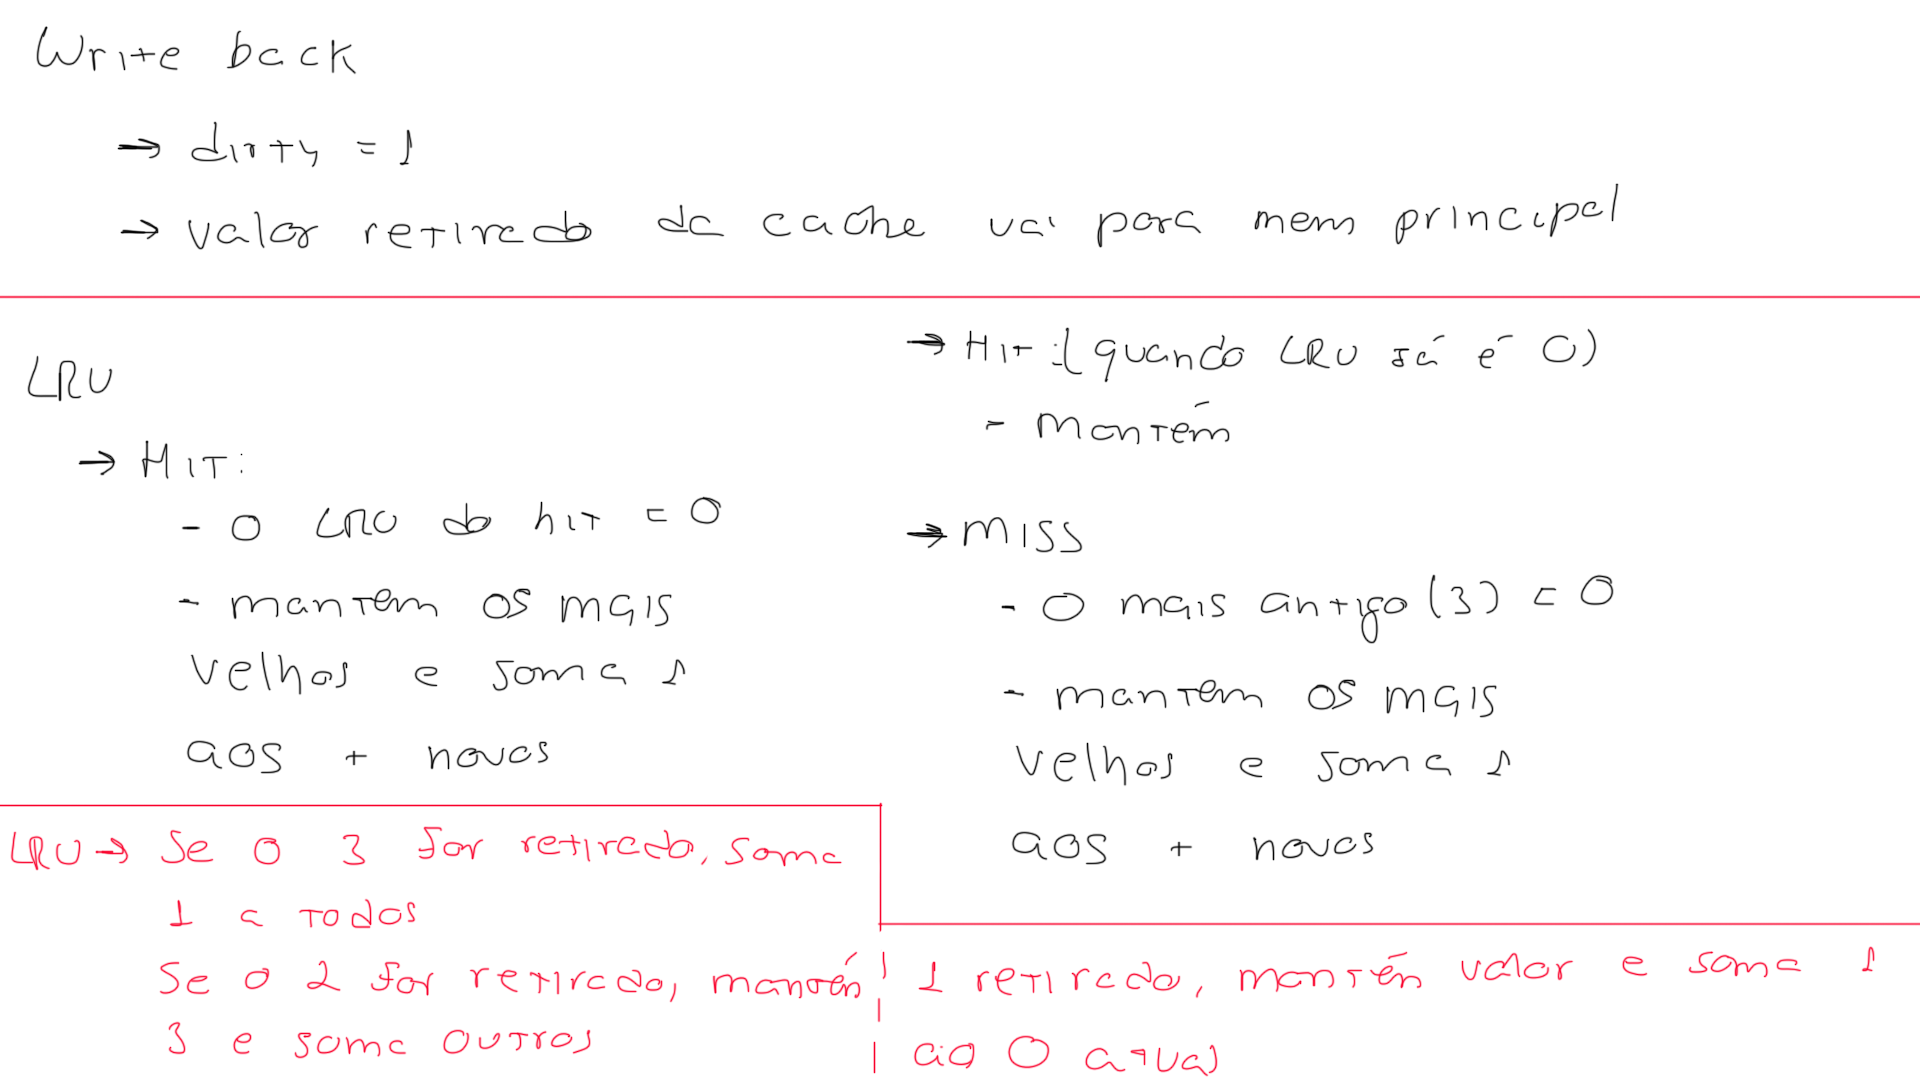 Write back
→ dirty = 1
→ valor retirado da cache vai para mem principal
LRU
→ HIT:
- O LRU do hit = 0
- mantem os mais
velhos e soma 1
aos + novos
→ HIT: (quando LRU já é 0)
- mantém
→ MISS
- O mais antigo (3) = 0
- mantem os mais
velhos e soma 1
aos + novos
LRU → Se o 3 for retirado, soma
1 a todos
Se o 2 for retirado, mantén
3 e soma outros
1 retirado, mantén valor e soma 1
ao 0 atual